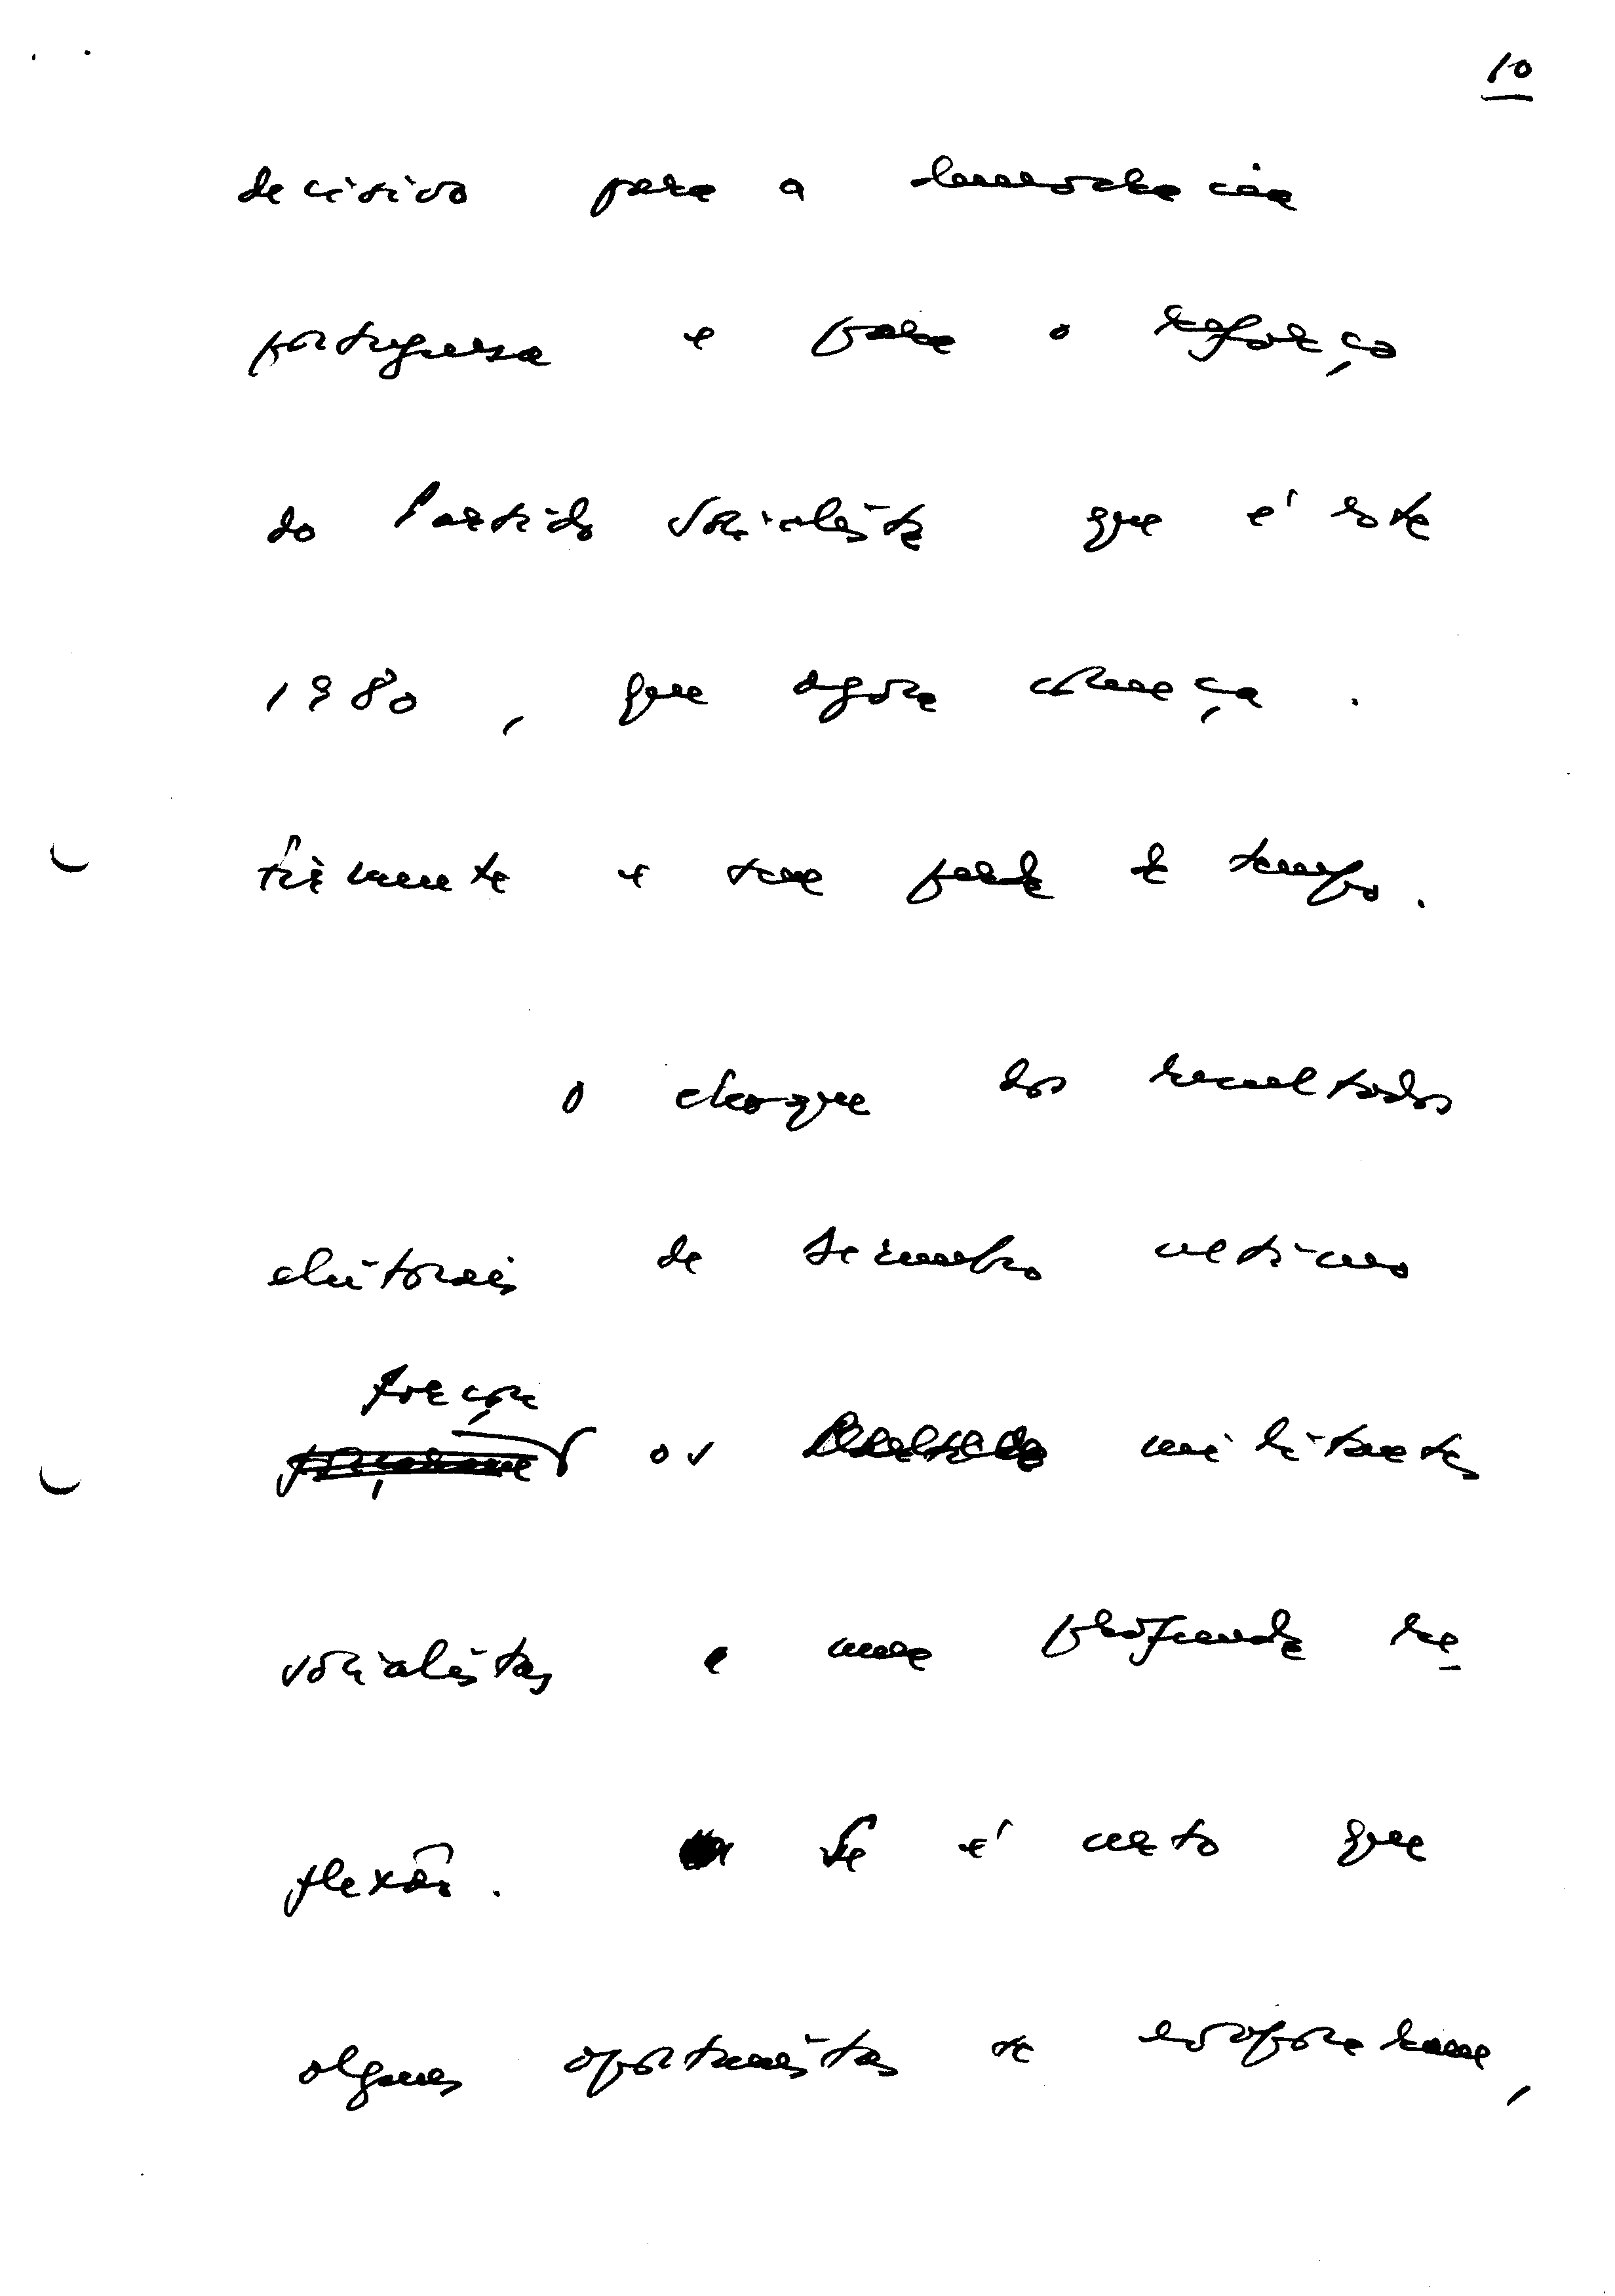 10
decisivo para a democracia
portuguesa e para o reforço
do Partido Socialista que é este
1980, que agora começa.
e sem perda de tempo.
O choque dos resultados
eleitorais de Dezembro ultimo
forçou
os militantes
socialistas a uma profunda re-
flexão. Se é certo que
alguns oportunistas se evaporaram,